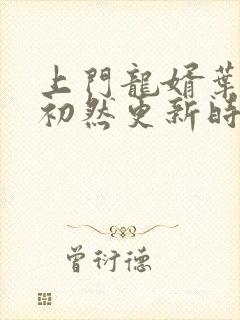 上門龍婿葉
初然更新時
曾衍德